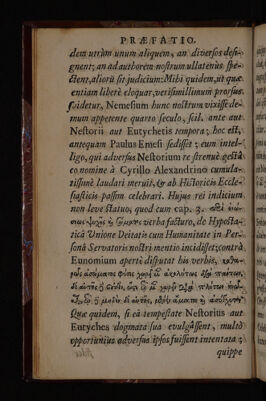 PRÆFATIO.
dem utrùm unum aliquem, an diversos desi-
gnent; an ad authorem nostrum ullatenùs spe-
ctent, aliorū sit judicium: Mihi quidem, ut quæ
sentiam liberè eloquar, verisimillimum prorsus
videtur, Nemesium hunc nostrum vixisse de-
num appetente quarto seculo, scil. ante aut
Nestorii aut Eutychetis tempora; hoc est,
antequam Paulus Emesi sedisset; eum intel-
ligo, qui adversus Nestorium re strenuè gestâ
eo nomine à Cyrillo Alexandrino cumula-
tissimè laudari meruit, & ab Historicis Eccle-
siasticis passim celebrari. Hujus rei indicium
non leve statuo, quod cum cap. 3.
verba facturo, de Hyposta-
ticâ Unione Deitatis cum Humanitate in Per-
sonâ Servatoris nostri mentio incidisset; contrà
Eunomium apertè disputat his verbis,
Quæ quidem, si eâ tempestate Nestorius aut
Eutyches dogmata sua evulgâssent, multò
opportuniùs adversus ipsos fuissent intentata;
quippe